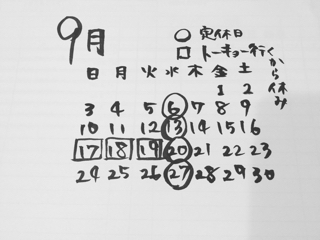 9月
○ 定休日
□ トーキョー行くから休み
日 月 火 水 木 金 土
1 2
3 4 5 6 7 8 9
10 11 12 13 14 15 16
17 18 19 20 21 22 23
24 25 26 27 28 29 30